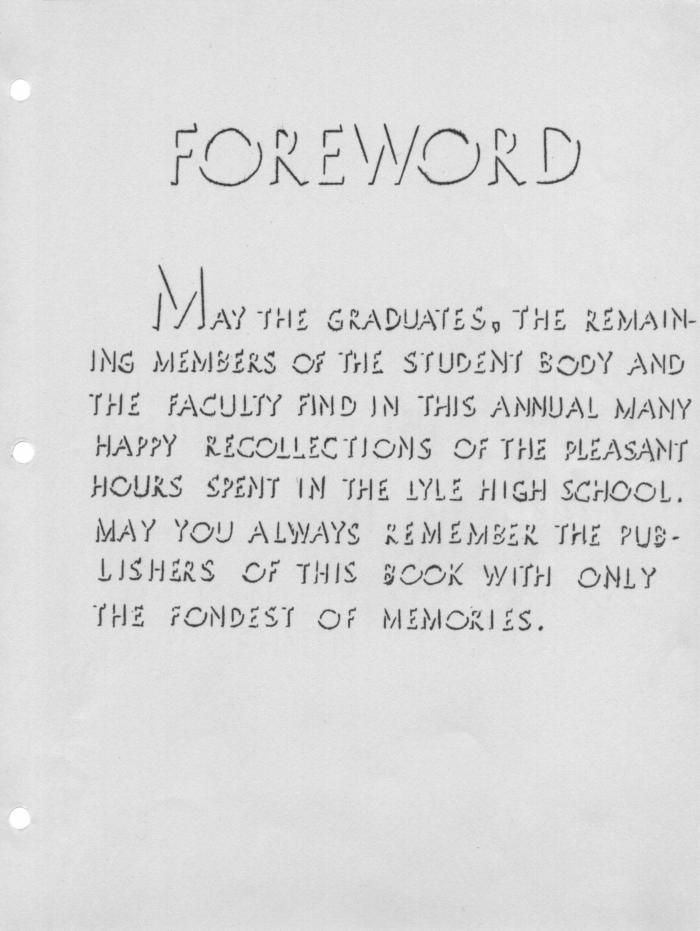 FOREWORD
MAY THE GRADUATES, THE REMAIN-
ING MEMBERS OF THE STUDENT BODY AND
THE FACULTY FIND IN THIS ANNUAL MANY
HAPPY RECOLLECTIONS OF THE PLEASANT
HOURS SPENT IN THE LYLE HIGH SCHOOL.
MAY YOU ALWAYS REMEMBER THE PUB-
LISHERS OF THIS BOOK WITH ONLY
THE FONDEST OF MEMORIES.